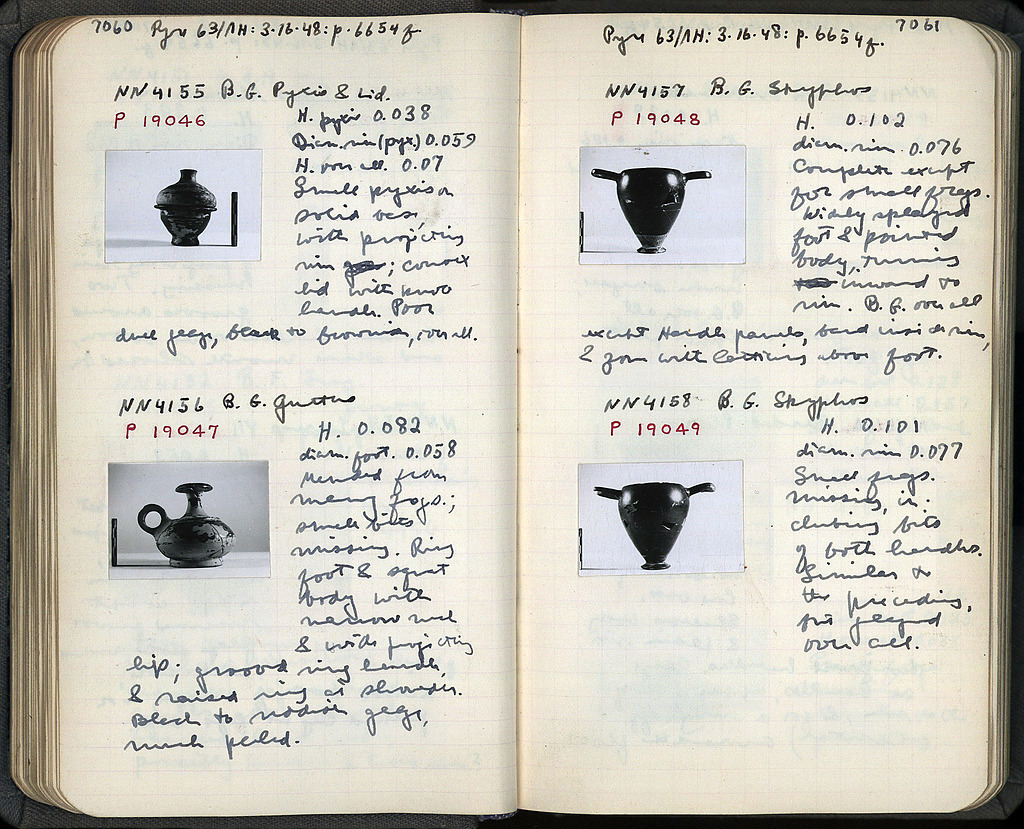 7060
Pyre 63/ΛH: 3·16·48: p. 6654 f.
NN4155 B.G. Pyxis & Lid.
P 19046
H. pyxis 0.038
Diam. rim (pyx.) 0.059
H. over all. 0.07
Small pyxis on
solid base
with projecting
rim ; convex
lid with knob
handle. Poor
dull glaze, black to brownish, over all.
NN4156 B.G. Guttus
P 19047
H. 0.082
diam. foot. 0.058
Mended from
many frags.;
small bits
missing. Ring
foot & squat
body with
narrow neck
& wide projecting
lip; grooved ring handle,
& raised ring at shoulder.
Black to reddish glaze,
much peeled.
7061
Pyre 63/ΛH: 3·16·48: p. 6654 f.
NN4157 B.G. Skyphos
P 19048
H. 0.102
diam. rim 0.076
Complete except
for small frags.
Widely splayed
foot & pointed
body, turning
inward to
rim. B.G. over all
except Handle panels, band inside rim,
& zone with latticing above foot.
NN4158 B.G. Skyphos
P 19049
H. 0.101
diam. rim 0.077
Small frags.
missing, in-
cluding bits
of both handles.
Similar to
the preceding,
but glazed
over all.